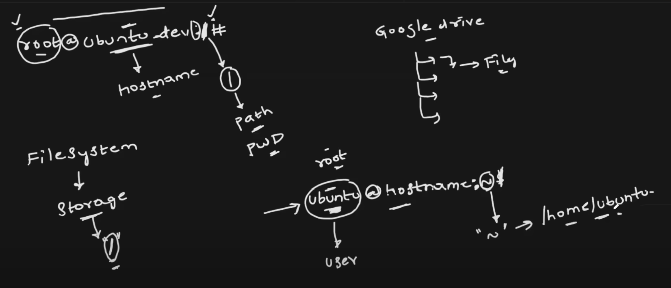 root@ubuntu-dev:/#
hostname
/
path
PWD
Google drive
File
Filesystem
Storage
"/"
root
ubuntu@hostname:~$
user
"~" → /home/ubuntu